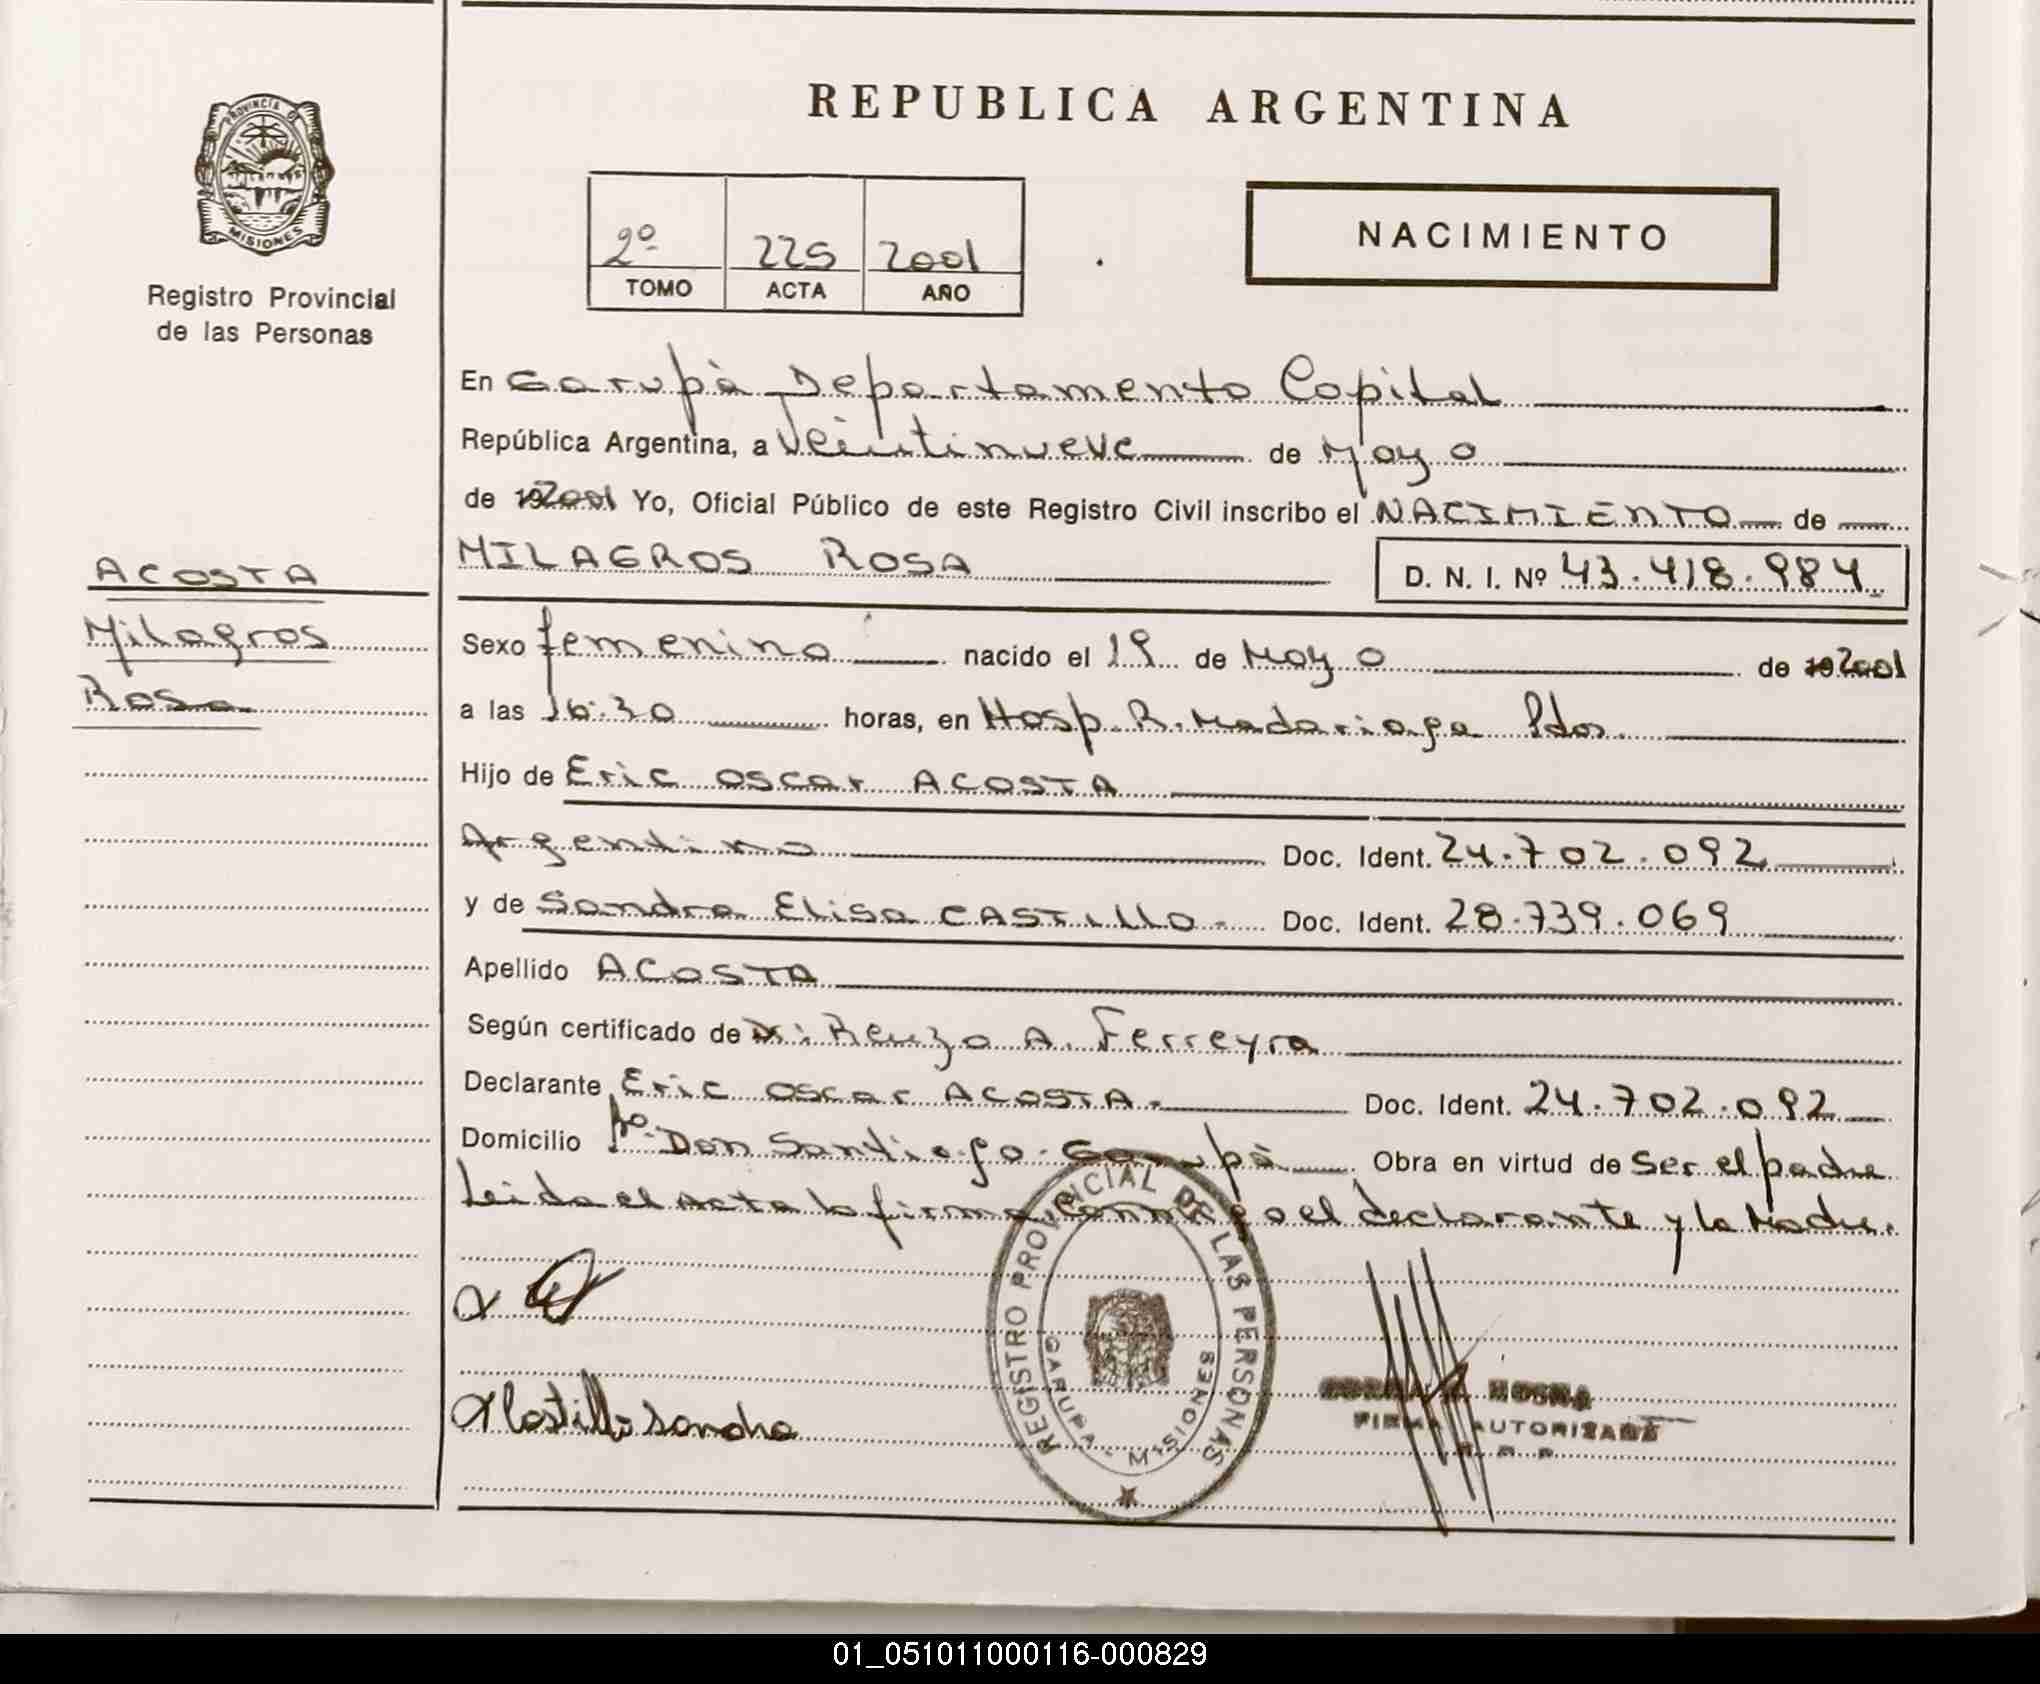 REPUBLICA ARGENTINA
PROVINCIA DE
MISIONES
Registro Provincial
de las Personas
2º 225 2001
TOMO ACTA AÑO
NACIMIENTO
En Garupà Departamento Capital
República Argentina, a Veintinueve de Mayo
de 192001 Yo, Oficial Público de este Registro Civil inscribo el NACIMIENTO de
MILAGROS ROSA D. N. I. Nº 43.418.984
ACOSTA
Milagros
Rosa
Sexo femenino nacido el 19 de Mayo de 192001
a las 16:30 horas, en Hosp. R. Madariaga Pdas.
Hijo de Eric Oscar ACOSTA
Argentino Doc. Ident. 24.702.092
y de Sandra Elisa CASTILLO Doc. Ident. 28.739.069
Apellido ACOSTA
Según certificado de Dr: Renzo A. Ferreyra
Declarante Eric Oscar ACOSTA Doc. Ident. 24.702.092
Domicilio Bº Don Santiago. Garupà Obra en virtud de Ser el padre
Leida el Acta la firma Conmigo el declarante y la Madre.
REGISTRO PROVINCIAL DE LAS PERSONAS
GARUPA - MISIONES
Castillo Sandra
FIRMA AUTORIZADA
01_051011000116-000829